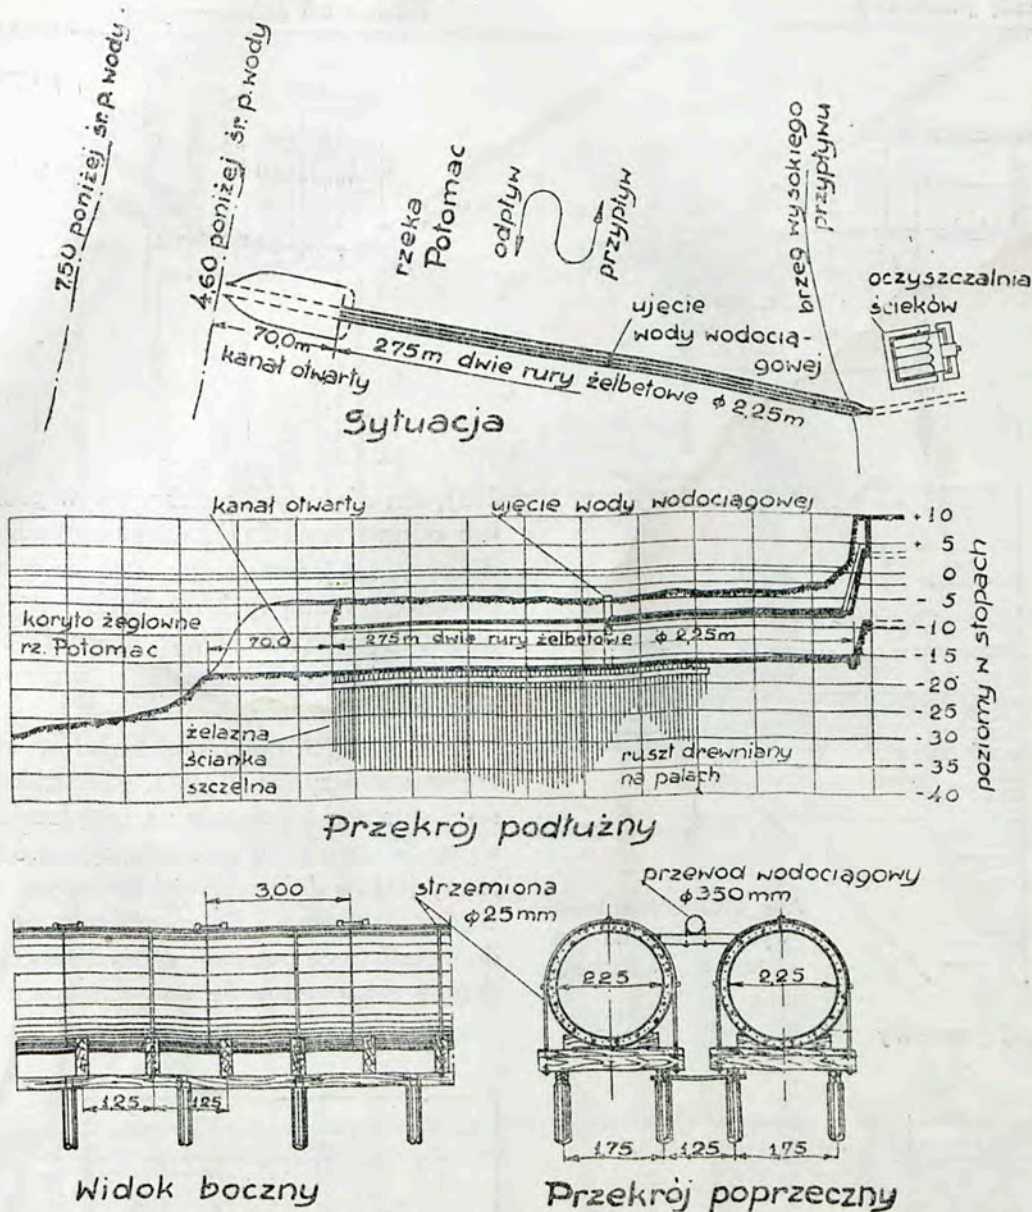 7.50 poniżej śr. p. wody.
4.60 poniżej śr. p. wody
rzeka
Potomac
odpływ
przypływ
brzeg wysokiego
przypływu
oczyszczalnia
ścieków
ujęcie
wody wodocią-
gowej
70,0m
kanał otwarty
275m dwie rury żelbetowe ϕ 2,25m
Sytuacja
kanał otwarty
ujęcie wody wodociągowej
+10
+ 5
0
-5
-10
-15
-20
-25
-30
-35
-40
poziomy w stopach
koryto żeglowne
rz. Potomac
70.0
275m dwie rury żelbetowe ϕ 2,25m
żelazna
ścianka
szczelna
ruszt drewniany
na palach
Przekrój podłużny
3,00
strzemiona
ϕ25mm
przewod wodociągowy
ϕ350mm
2.25
2,25
1.25
1.25
1.75
1.25
1.75
Widok boczny
Przekrój poprzeczny